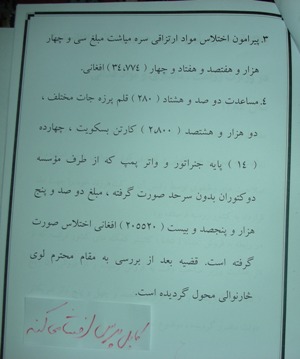 ۳. پیرامون اختلاس مواد ارتزاقی سره میاشت مبلغ سی و چهار
هزار و هفتصد و هفتاد و چهار (۳٤،۷۷٤) افغانی.
٤. مساعدت دو صد و هشتاد (۲۸۰) قلم پرزه جات مختلف ،
دو هزار و هشتصد (۲،۸۰۰) کارتن بسکویت ، چهارده
(۱٤) پایه جنراتور و واتر پمپ که از طرف مؤسسه
دوکتوران بدون سرحد صورت گرفته ، مبلغ دو صد و پنج
هزار و پنجصد و بیست (۲۰۵۵۲۰) افغانی اختلاس صورت
گرفته است. قضیه بعد از بررسی به مقام محترم لوی
څارنوالی محول گردیده است.
کابل پرس افشا می کند